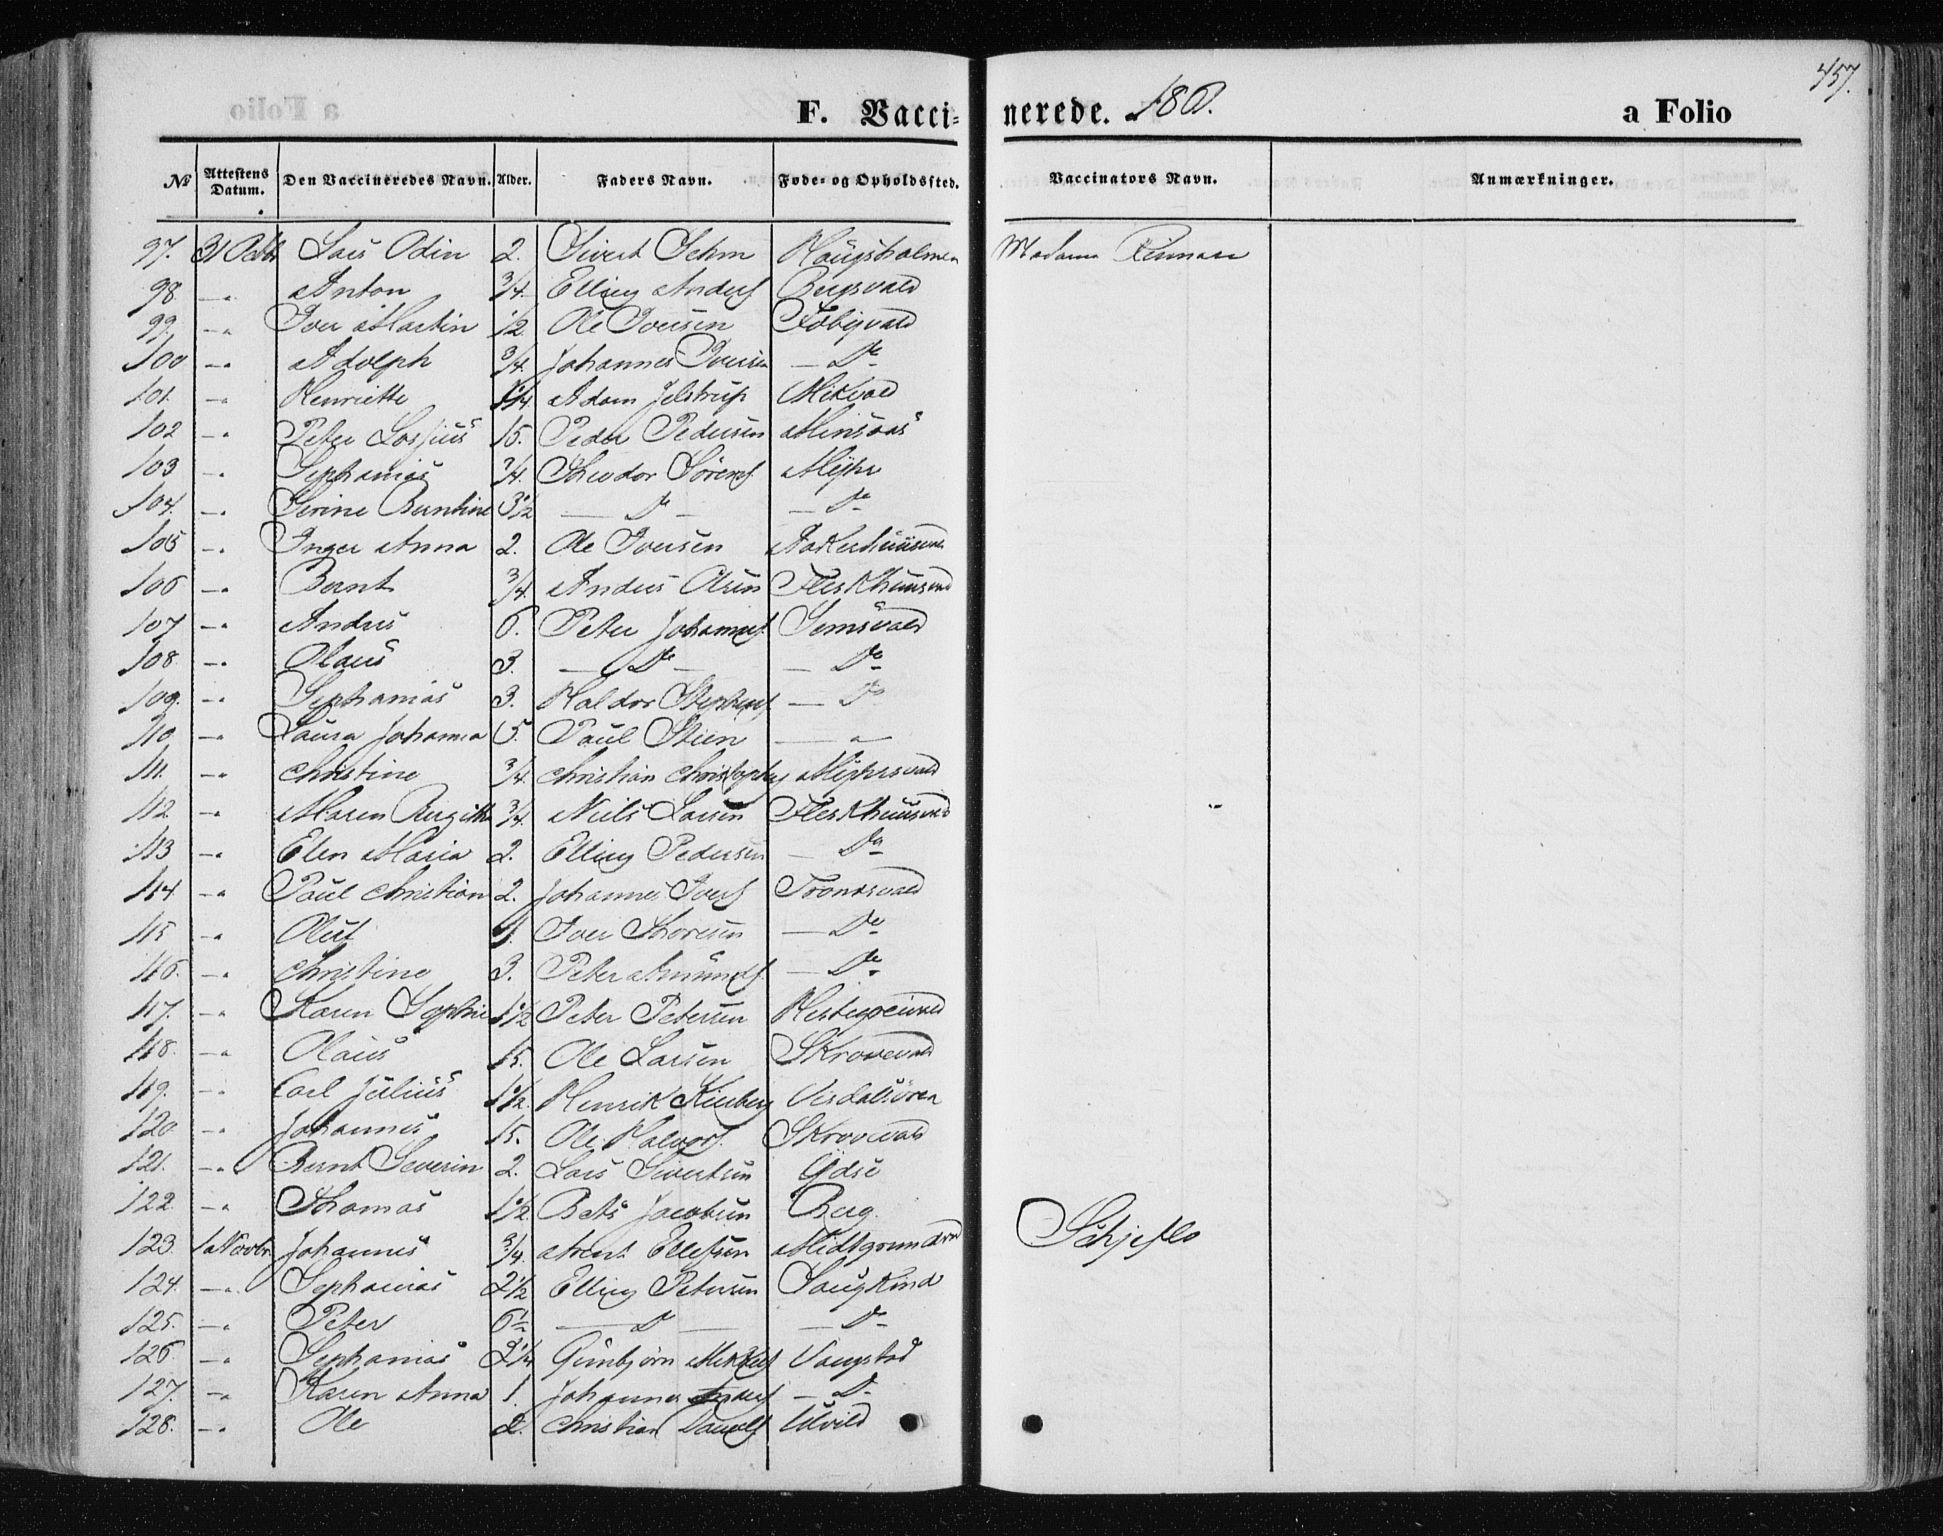 457.
F. Vaccinerede. 186.
a Folio
№ Attestens Datum. Den Vaccineredes Navn. Alder. Faders Navn. Føde- og Opholdssted. Vaccinators Navn. Anmærkninger.
97. 31 Octbr Lars Odin 2. Sivert Sehm Haugsholmen Madame
98 -" Anton 3/4. Elling Anders Bergsvald
99 -" Iver Martin 1/2 Ole Iversen
100 -" Adolph 3/4. Johannes Iversen — Do -
101. -" Henriette Adam Jelstrup Mikvold
102 -" Peter 15. Peder Pedersen Minsaas
103 -" Sephanias 3/4. Theodor Sørens Myhr
104. -" Serine Berntine 3 1/2 — Do — — Do -
105 -" Inger Anna 2. Ole Iversen
106 -" Bernt 3/4. Andres Olsen Fleskhuusvald
107 -" Andres 6. Peter Johannes Semsvald
108 -" Olaus 3. — Do — — Do -
109. -" Sephanias 3. Haldor Stephens — Do
110 -" Laura Johanna 5. Paul Stien — "
111. -" Christine 3/4. Christian Christophs Myhrsvald
112 -" Maren Birgitha 3/4. Niels Larsen Fleskhuusvald
113 -" Elen Maria 2. Elling Pedersen — Do -
114 -" Paul Christian 2. Johannes Ivers Tronesvald
115 -" Oluf Iver Thoresen — Do -
116. -" Christine 3. Peter Amunds — Do -
117. -" Karen Sophie 1 1/2 Peter Petersen
118. -" Olaus 15. Ole Larsen Skrovevald
119. -" Carl Julius 1 1/2. Henrik Verdalsøren
120 -" Johannes 15. Ole Halvors. Skrovevald
121. -" Bernt Severin 2. Lars Sivertsen Ydse
122. -" Thomas 1 1/2 Bets Jacobsen Berg
123. 1a Novbr. Johannes 3/4. Arent Ellefsen Midtgrunden Schjeflo
124. -" Sephanias 2 1/2 Elling Petersen Saugkind
125. -" Peter 6 1/2 — Do — — Do -
126. -" Sephanias 2 1/4 Gunbjørn Mikkels Vangstad
127. -" Karen Anna 1. Johannes Anders — Do -
128. -" Ole 2. Christian Daniels Ulvild